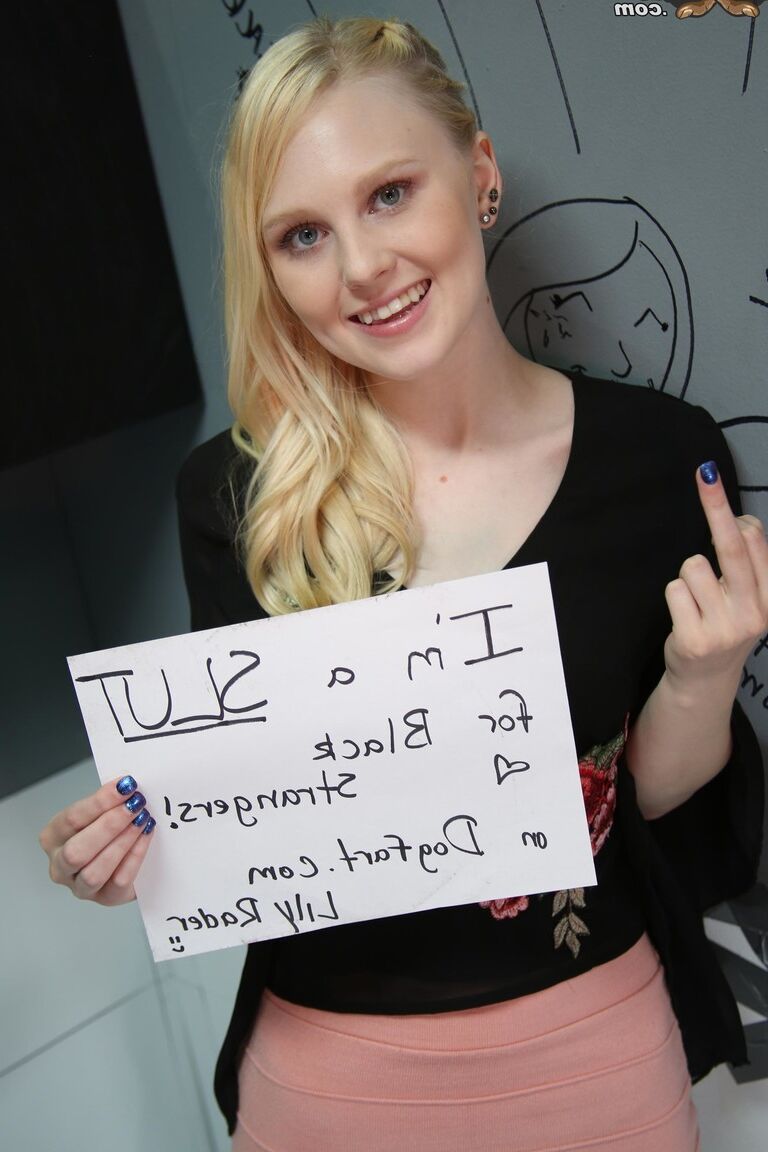 .com
I'm a SLUT
for Black
Strangers!
on Dogfart.com
Lily Rader